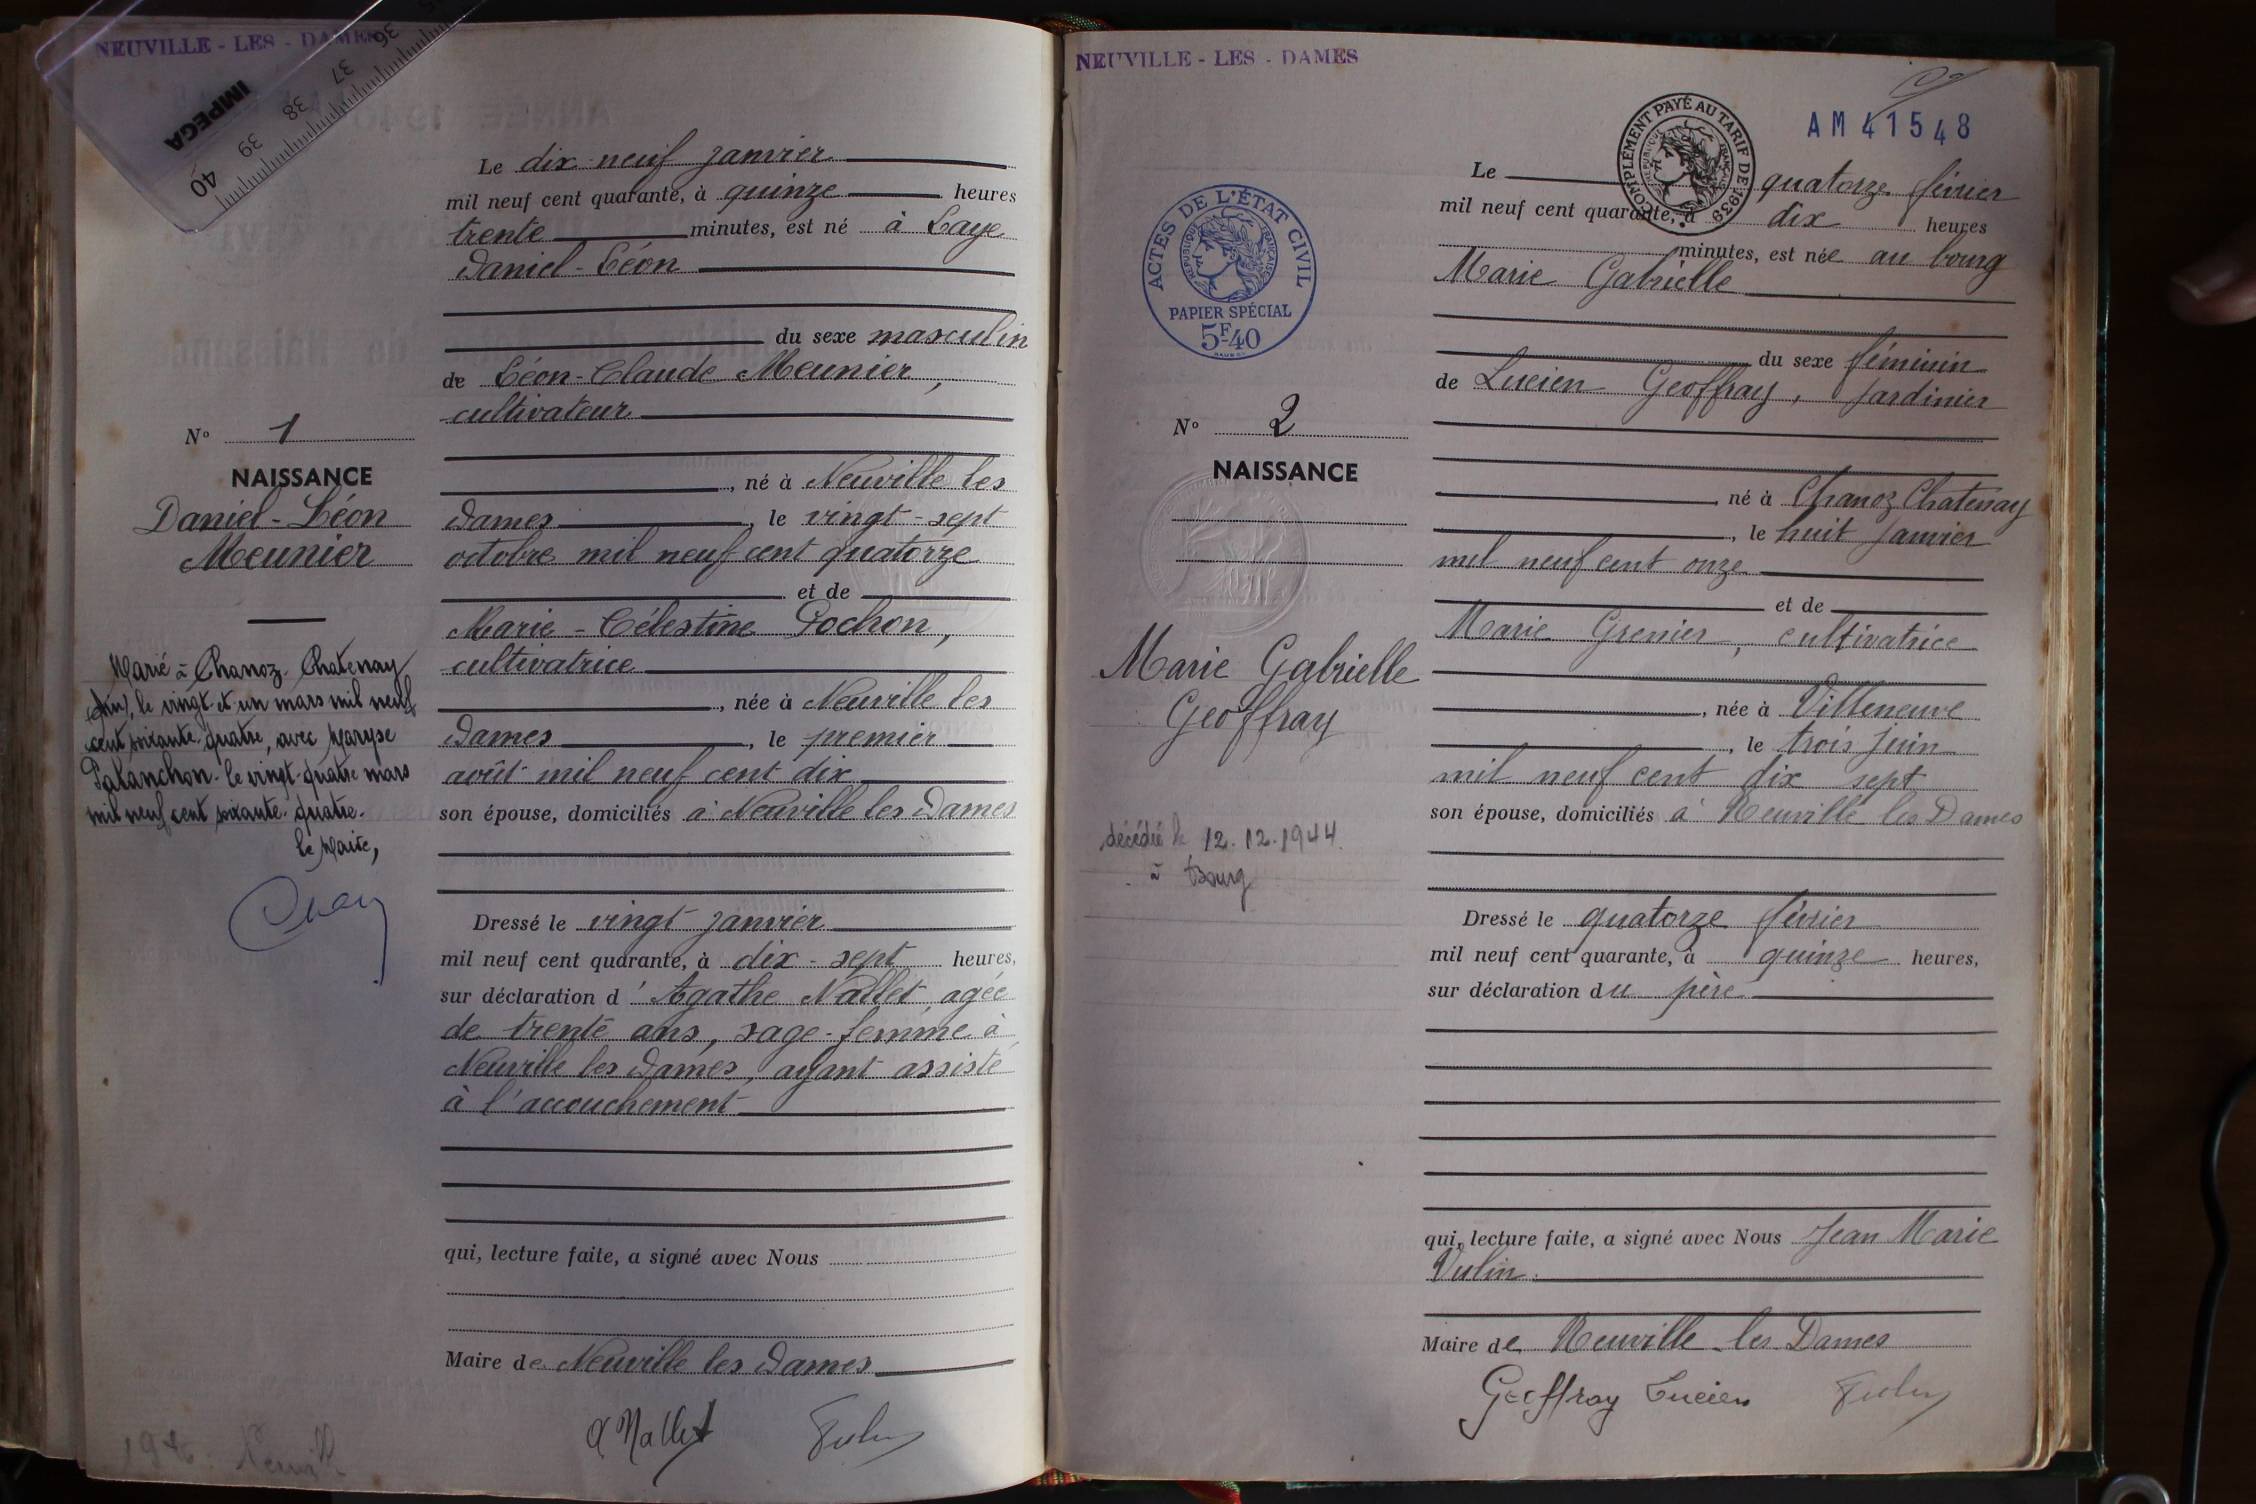 NEUVILLE - LES - DAMES
36
37
38
39
40
IMPEGA
Le dix-neuf janvier
mil neuf cent quarante, à quinze heures
trente minutes, est né à Laye
Daniel-Léon
du sexe masculin
de Léon-Claude Meunier,
cultivateur
, né à Neuville les
Dames, le vingt-sept
octobre mil neuf cent quatorze
et de
Marie-Célestine Pochon,
cultivatrice
, née à Neuville les
Dames, le premier
août mil neuf cent dix
son épouse, domiciliés à Neuville les Dames
Dressé le vingt janvier
mil neuf cent quarante, à dix-sept heures,
sur déclaration d'Agathe Nallet, agée
de trente ans, sage-femme à
Neuville les Dames, ayant assisté
à l'accouchement
qui, lecture faite, a signé avec Nous
Maire de Neuville les Dames
A Nallet
N° 1
NAISSANCE
Daniel-Léon
Meunier
Marié à Chanoz-Chatenay
(Ain), le vingt-et-un mars mil neuf
cent soixante-quatre, avec Maryse
Palanchon. le vingt-quatre mars
mil neuf cent soixante-quatre.
le Maire,
NEUVILLE - LES - DAMES
AM 41548
COMPLÉMENT PAYÉ AU TARIF DE 1939
REPUBLIQUE FRANÇAISE
ACTES DE L'ÉTAT CIVIL
REPUBLIQUE FRANÇAISE
PAPIER SPÉCIAL
5F40
Le quatorze février
mil neuf cent quarante, à dix heures
minutes, est née au bourg
Marie Gabrielle
du sexe féminin
de Lucien Geoffray, jardinier
né à Chanoz Chatenay
, le huit janvier
mil neuf cent onze
et de
Marie Grenier, cultivatrice
, née à Villeneuve
, le trois juin
mil neuf cent dix sept
son épouse, domiciliés à Neuville les Dames
Dressé le quatorze février
mil neuf cent quarante, à quinze heures,
sur déclaration du père
qui, lecture faite, a signé avec Nous Jean Marie
Vulin.
Maire de Neuville les Dames
Geoffray Lucien
N° 2
NAISSANCE
Marie Gabrielle
Geoffray
décédée le 12.12.1944
à Bourg